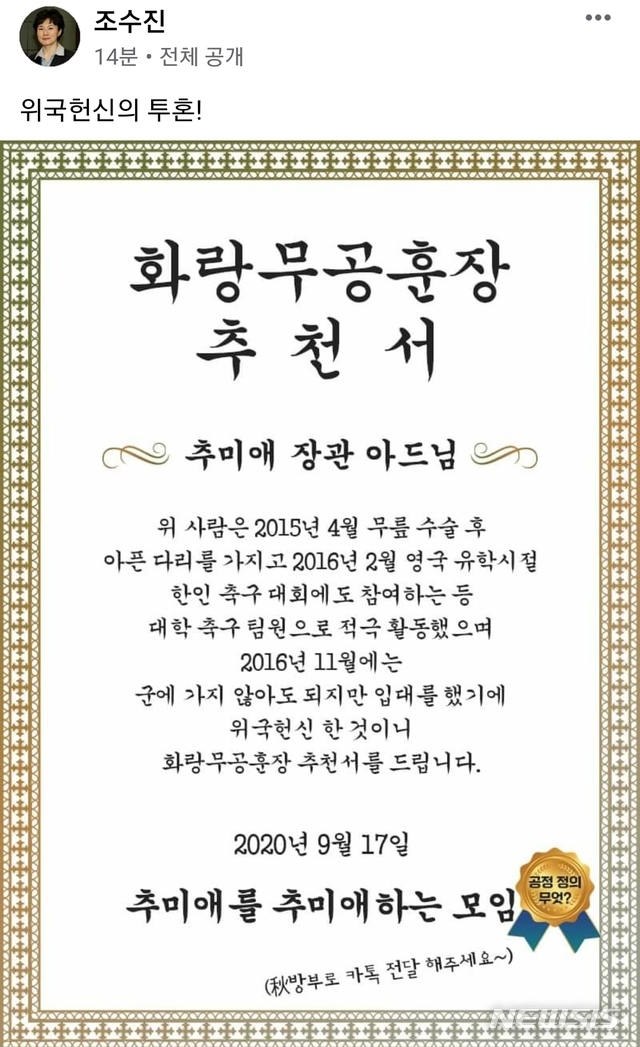 조수진
14분 • 전체 공개
위국헌신의 투혼!
화랑무공훈장
추 천 서
추미애 장관 아드님
위 사람은 2015년 4월 무릎 수술 후
아픈 다리를 가지고 2016년 2월 영국 유학시절
한인 축구 대회에도 참여하는 등
대학 축구 팀원으로 적극 활동했으며
2016년 11월에는
군에 가지 않아도 되지만 입대를 했기에
위국헌신 한 것이니
화랑무공훈장 추천서를 드립니다.
2020년 9월 17일
추미애를 추미애하는 모임
공정 정의
무엇?
(秋방부로 카톡 전달 해주세요~)
NEWSIS